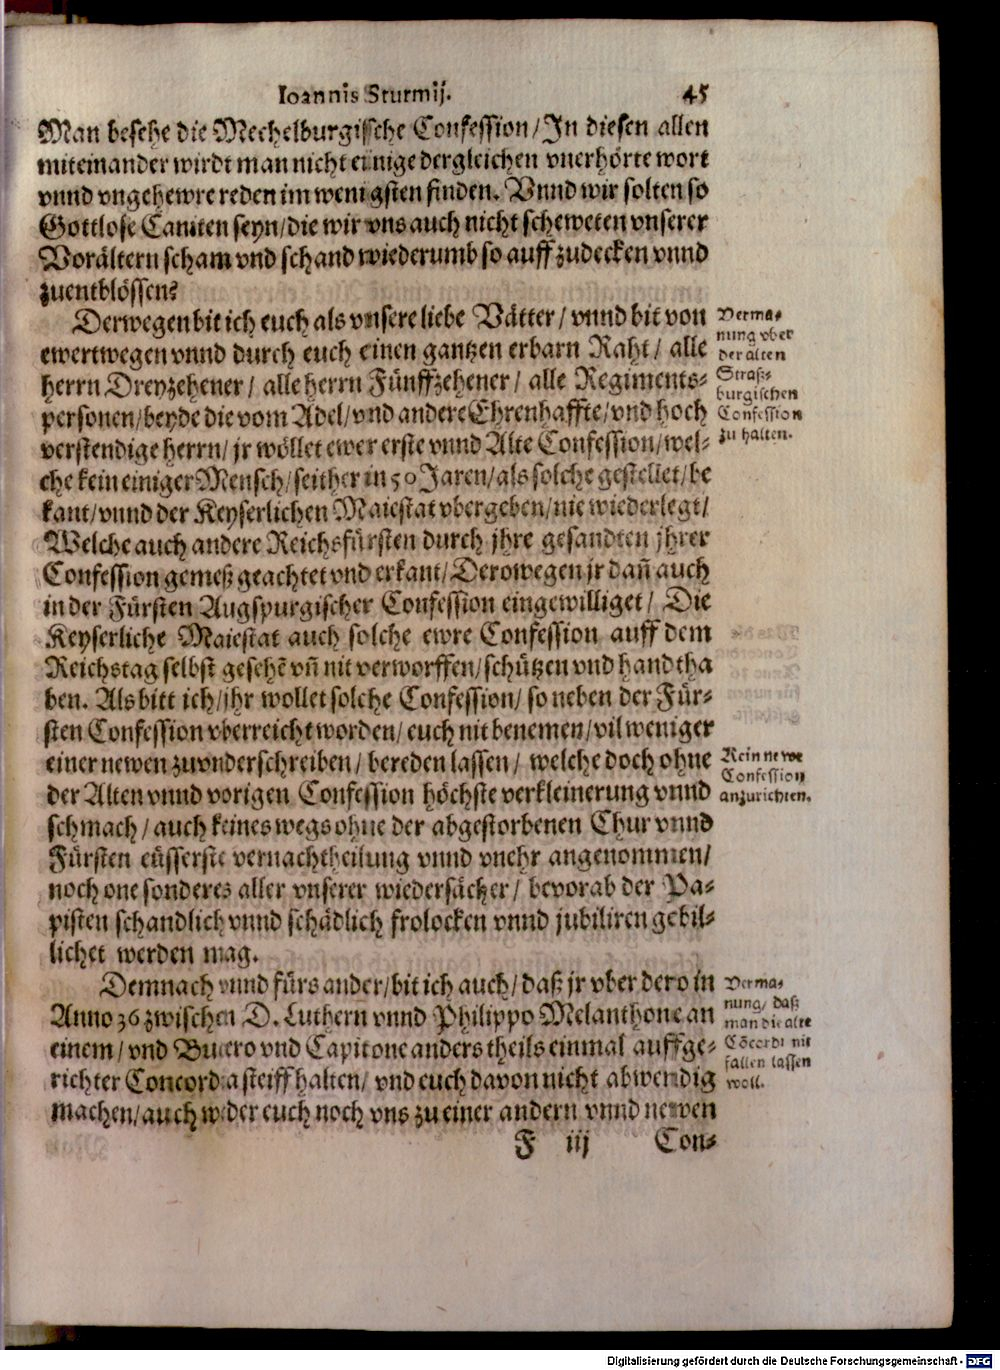 Ioannis Sturmij. 45
Man besehe die Mechelburgische Confession/ In diesen allen
miteinander wirdt man nicht einige dergleichen vnerhörte wort
vnnd vngehewre reden im wenigsten finden. Vnnd wir solten so
Gottlose Camiten seyn/ die wir vns auch nicht scheweten vnserer
Vorältern scham vnd schand wiederumb so auffzudecken vnnd
zuentblössen?
Derwegen bit ich euch als vnsere liebe Vätter/ vnnd bit von
ewertwegen vnnd durch euch einen gantzen erbarn Raht/ alle
herrn Dreyzehener/ alle herrn Fünffzehener/ alle Regiments-
personen/ beyde die vom Adel/ vnd andere Ehrenhaffte/ vnd hoch
verstendige herrn/ jr wöllet ewer erste vnnd Alte Confession/ wel-
che kein einiger Mensch/ seither in 50 Jaren/ als solche gestellet/ be
kant/ vnnd der Keyserlichen Maiestat vbergeben/ nie wiederlegt/
Welche auch andere Reichsfürsten durch jhre gesandten jhrer
Confession gemeß geachtet vnd erkant/ Derowegen jr dañ auch
in der Fürsten Augspurgischer Confession eingewilliget/ Die
Keyserliche Maiestat auch solche ewre Confession auff dem
Reichstag selbst gesehẽ vñ nit verworffen/ schützen vnd handtha
ben. Als bitt ich/ jhr wollet solche Confession/ so neben der Für-
sten Confession vberreicht worden/ euch nit benemen/ vil weniger
einer newen zuvnderschreiben/ bereden lassen/ welche doch ohne
der Alten vnnd vorigen Confession höchste verkleinerung vnnd
schmach/ auch keines wegs ohne der abgestorbenen Chur vnnd
Fürsten eüsserste vernachtheilung vnnd vnehr angenommen/
noch one sonderes aller vnserer wiedersächer/ bevorab der Pa-
pisten schandlich vnnd schädlich frolocken vnnd jubiliren gebil-
lichet werden mag.
Demnach vnnd fürs ander/ bit ich auch/ daß jr vber dero in
Anno 36 zwischen D. Luthern vnnd Philippo Melanthone an
einem/ vnd Bucero vnd Capitone anders theils einmal auffge-
richter Concordia steiff halten/ vnd euch davon nicht abwendig
machen/ auch weder euch noch vns zu einer andern vnnd newen
F iij Con-
Verma-
nung vber
der alten
Straß-
burgischen
Confession
zu halten.
Kein newe
Confession
anzurichten.
Verma-
nung/ daß
man die alte
Cõcordi nit
fallen lassen
woll.
Digitalisierung gefördert durch die Deutsche Forschungsgemeinschaft - DFG